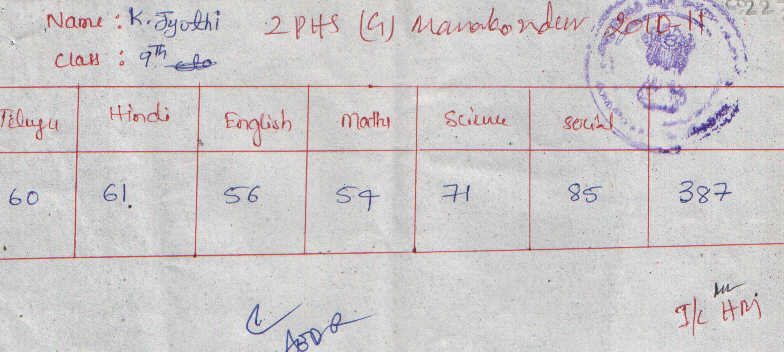 Name : K. Jyothi 2PHS (G) Manakondur 2010-11
Class : 9TH
Telugu Hindi English Maths Science social
60 61. 56 54 71 85 387
I/c HM